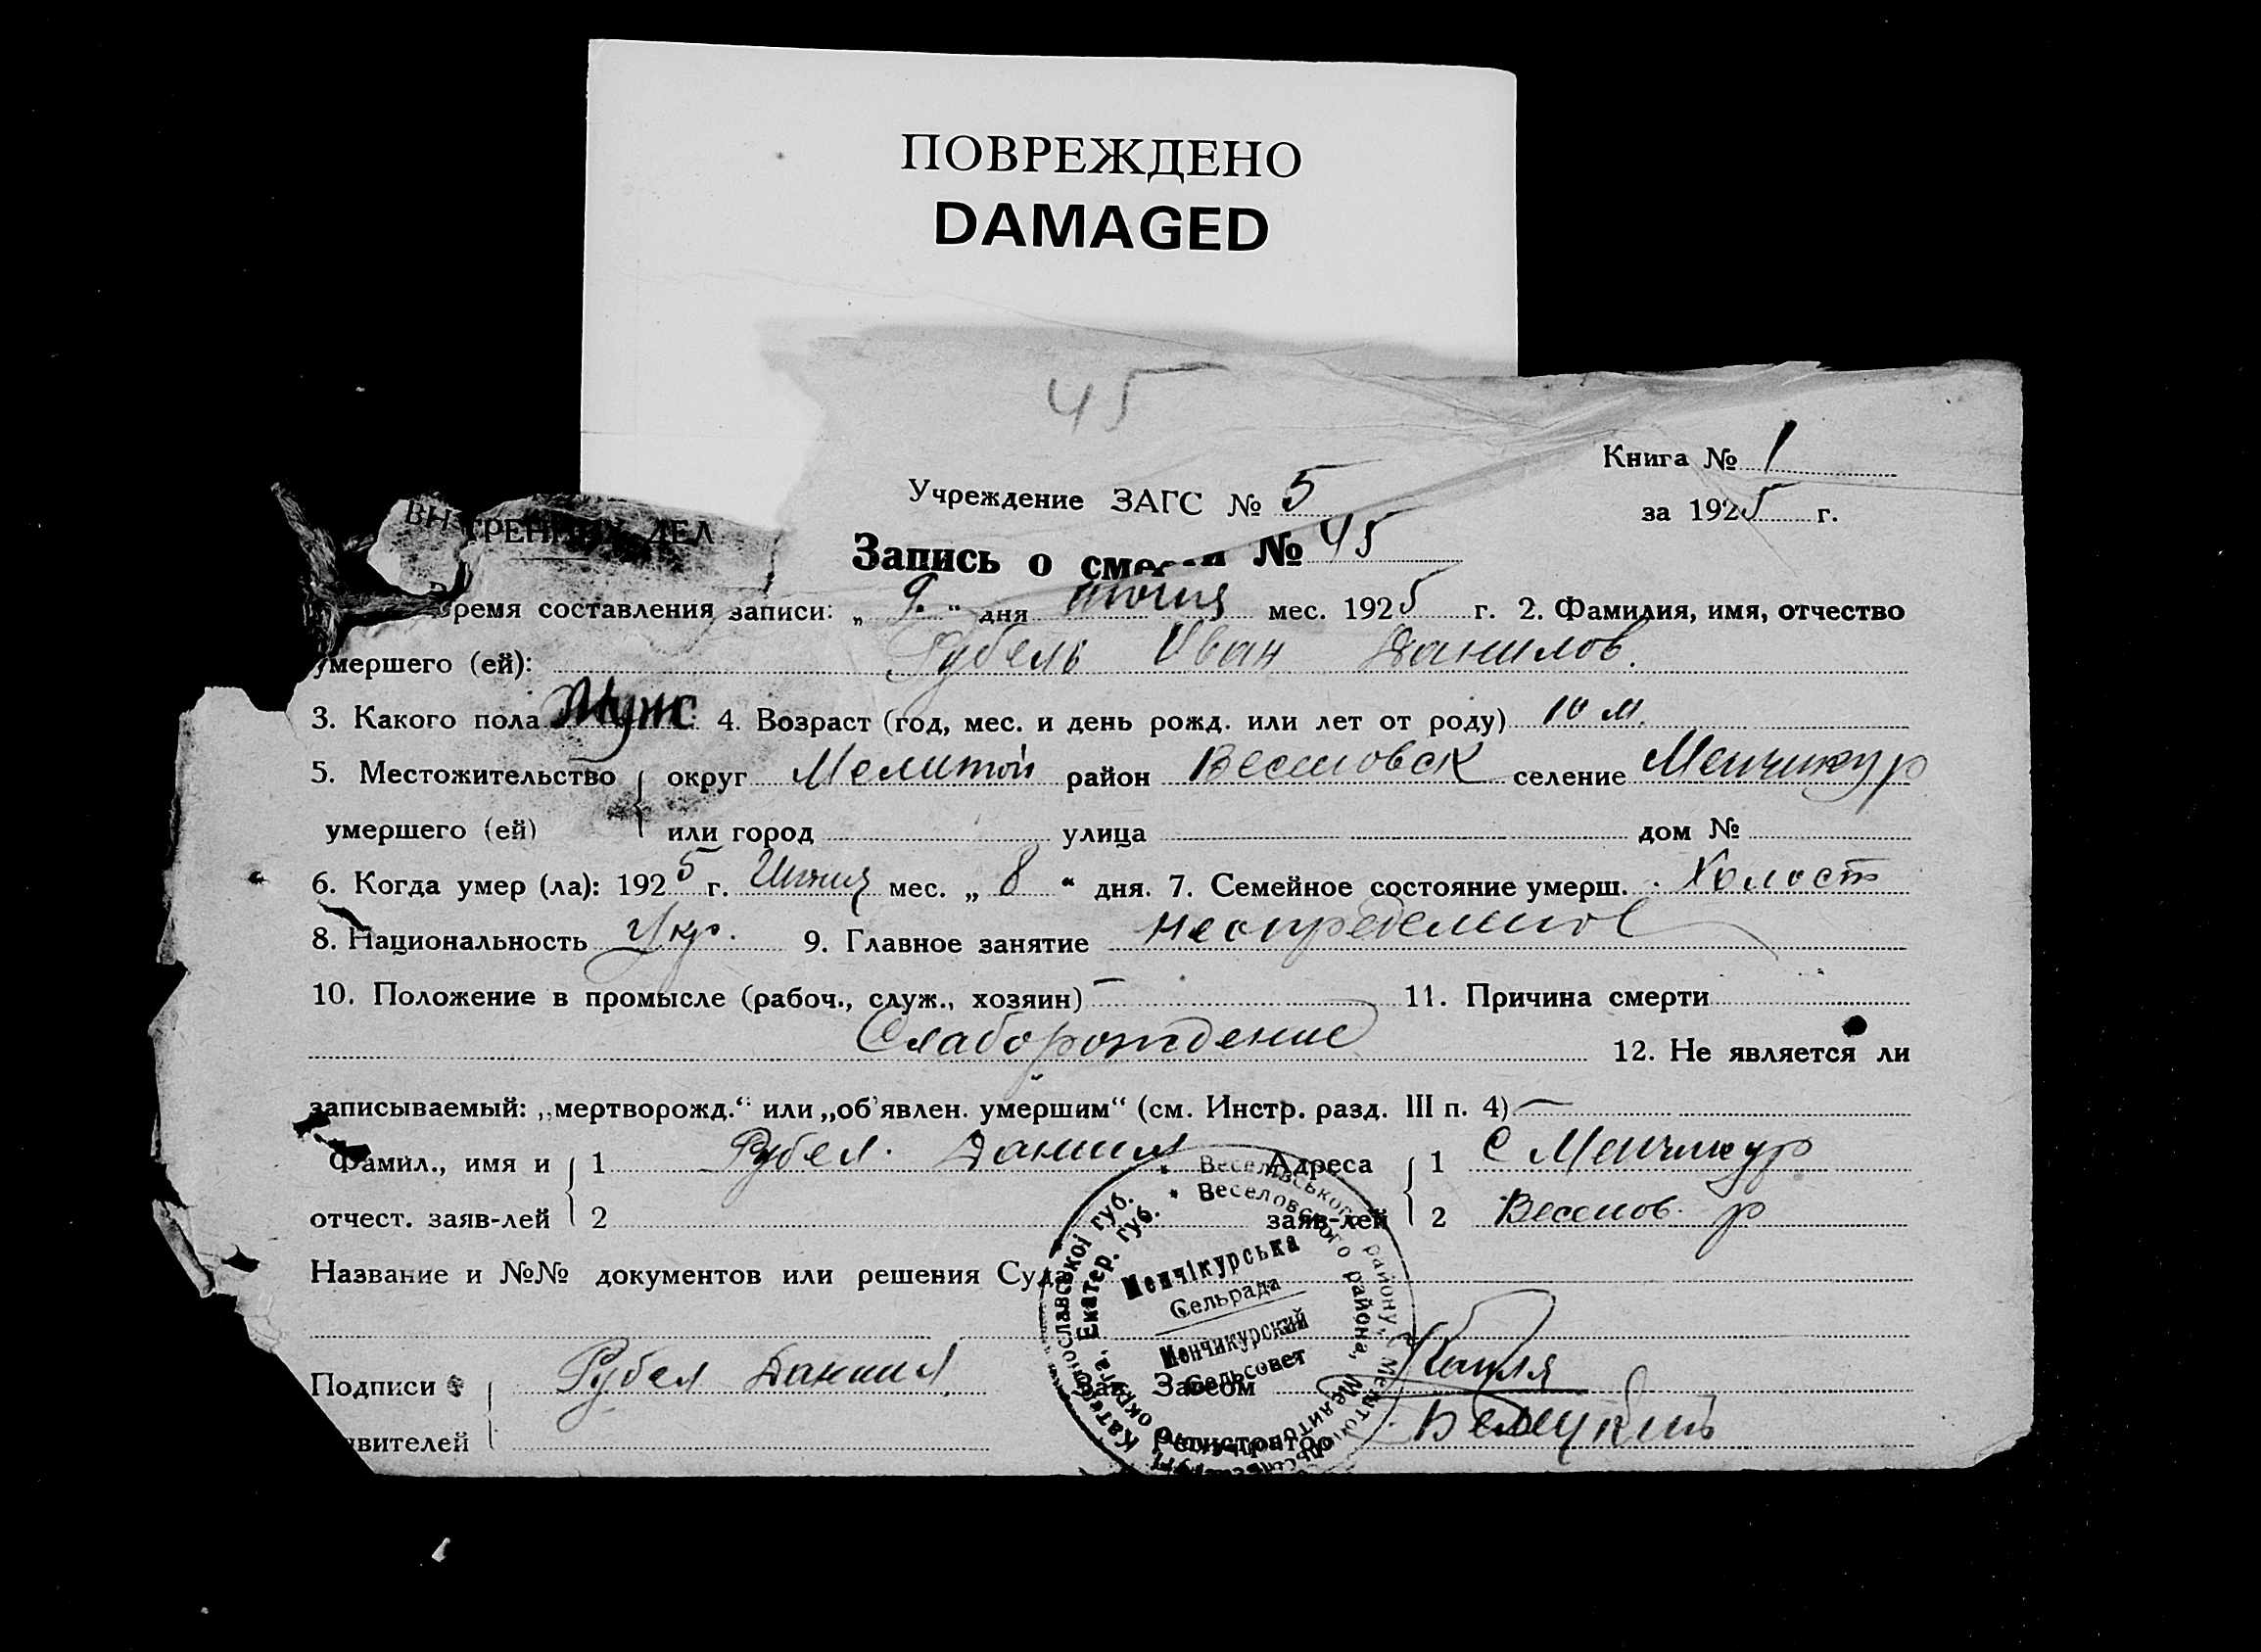 ПОВРЕЖДЕНО
DAMAGED
45
Книга № 1
Учреждение ЗАГС № 5
за 1925 г.
ВНУТРЕННИХ ДЕЛ
Запись о смерти № 45
Время составления записи: „ 9. “ дня июня мес. 1925 г. 2. Фамилия, имя, отчество
умершего (ей): Рубель Иван Данилов.
3. Какого пола Муж 4. Возраст (год, мес. и день рожд. или лет от роду) 10 м.
5. Местожительство округ Мелитой район Веселовск селение Менчикур
умершего (ей) или город улица дом №
6. Когда умер (ла): 1925 г. Июня мес. „ 8 “ дня. 7. Семейное состояние умерш. Холост
8. Национальность Укр. 9. Главное занятие неопределенное
10. Положение в промысле (рабоч., служ., хозяин) — 11. Причина смерти
Слаборождение 12. Не является ли
записываемый: „мертворожд.“ или „об'явлен. умершим“ (см. Инстр. разд. III п. 4) —
Фамил., имя и 1 Рубел. Даниил Адреса 1 С Менчикур
отчест. заяв-лей 2 заяв-лей 2 Веселов. р
Название и №№ документов или решения Суда
Подписи Рубел Даниил Зав. Загсом
явителей Регистратор Белецкий
* Веселівського району, Мелитоп
* Веселовского района, Мелитоп
Катеринославської губ.
округа, Екатер. губ.
Менчікурська
Сельрада
Менчикурский
Сельсовет